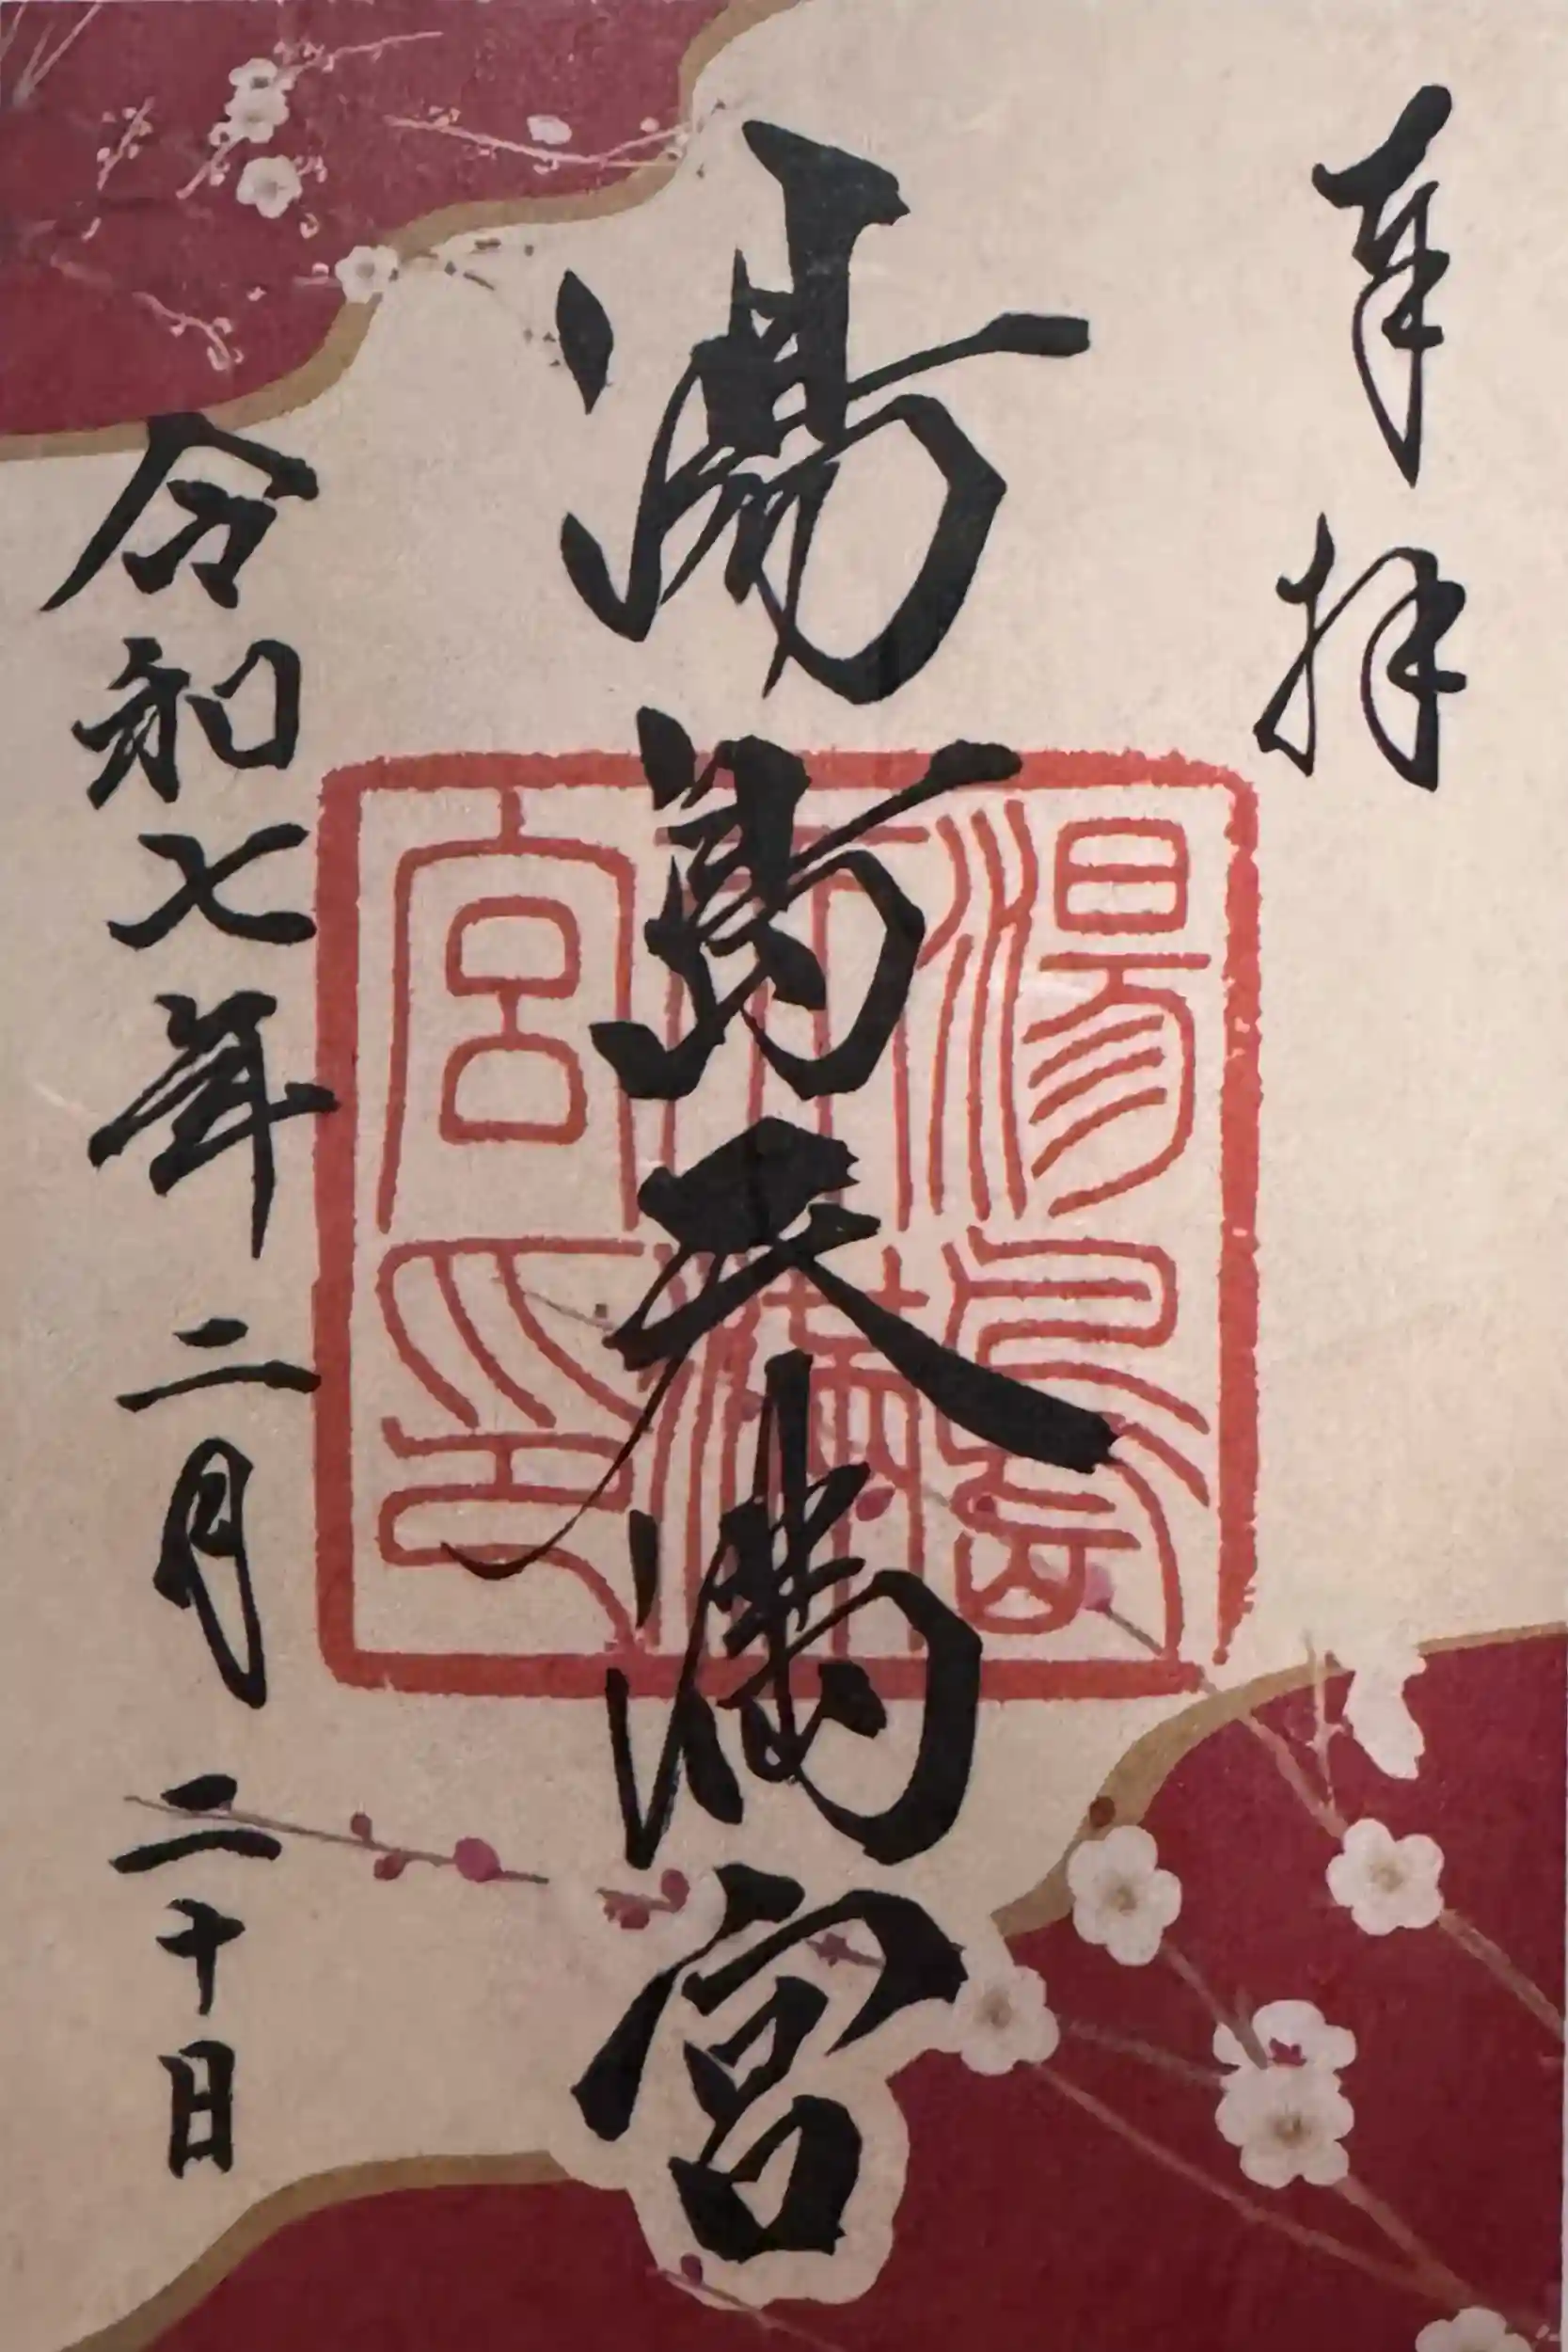 奉拝
湯島天満宮
令和七年二月二十日
湯島
天満
宮印